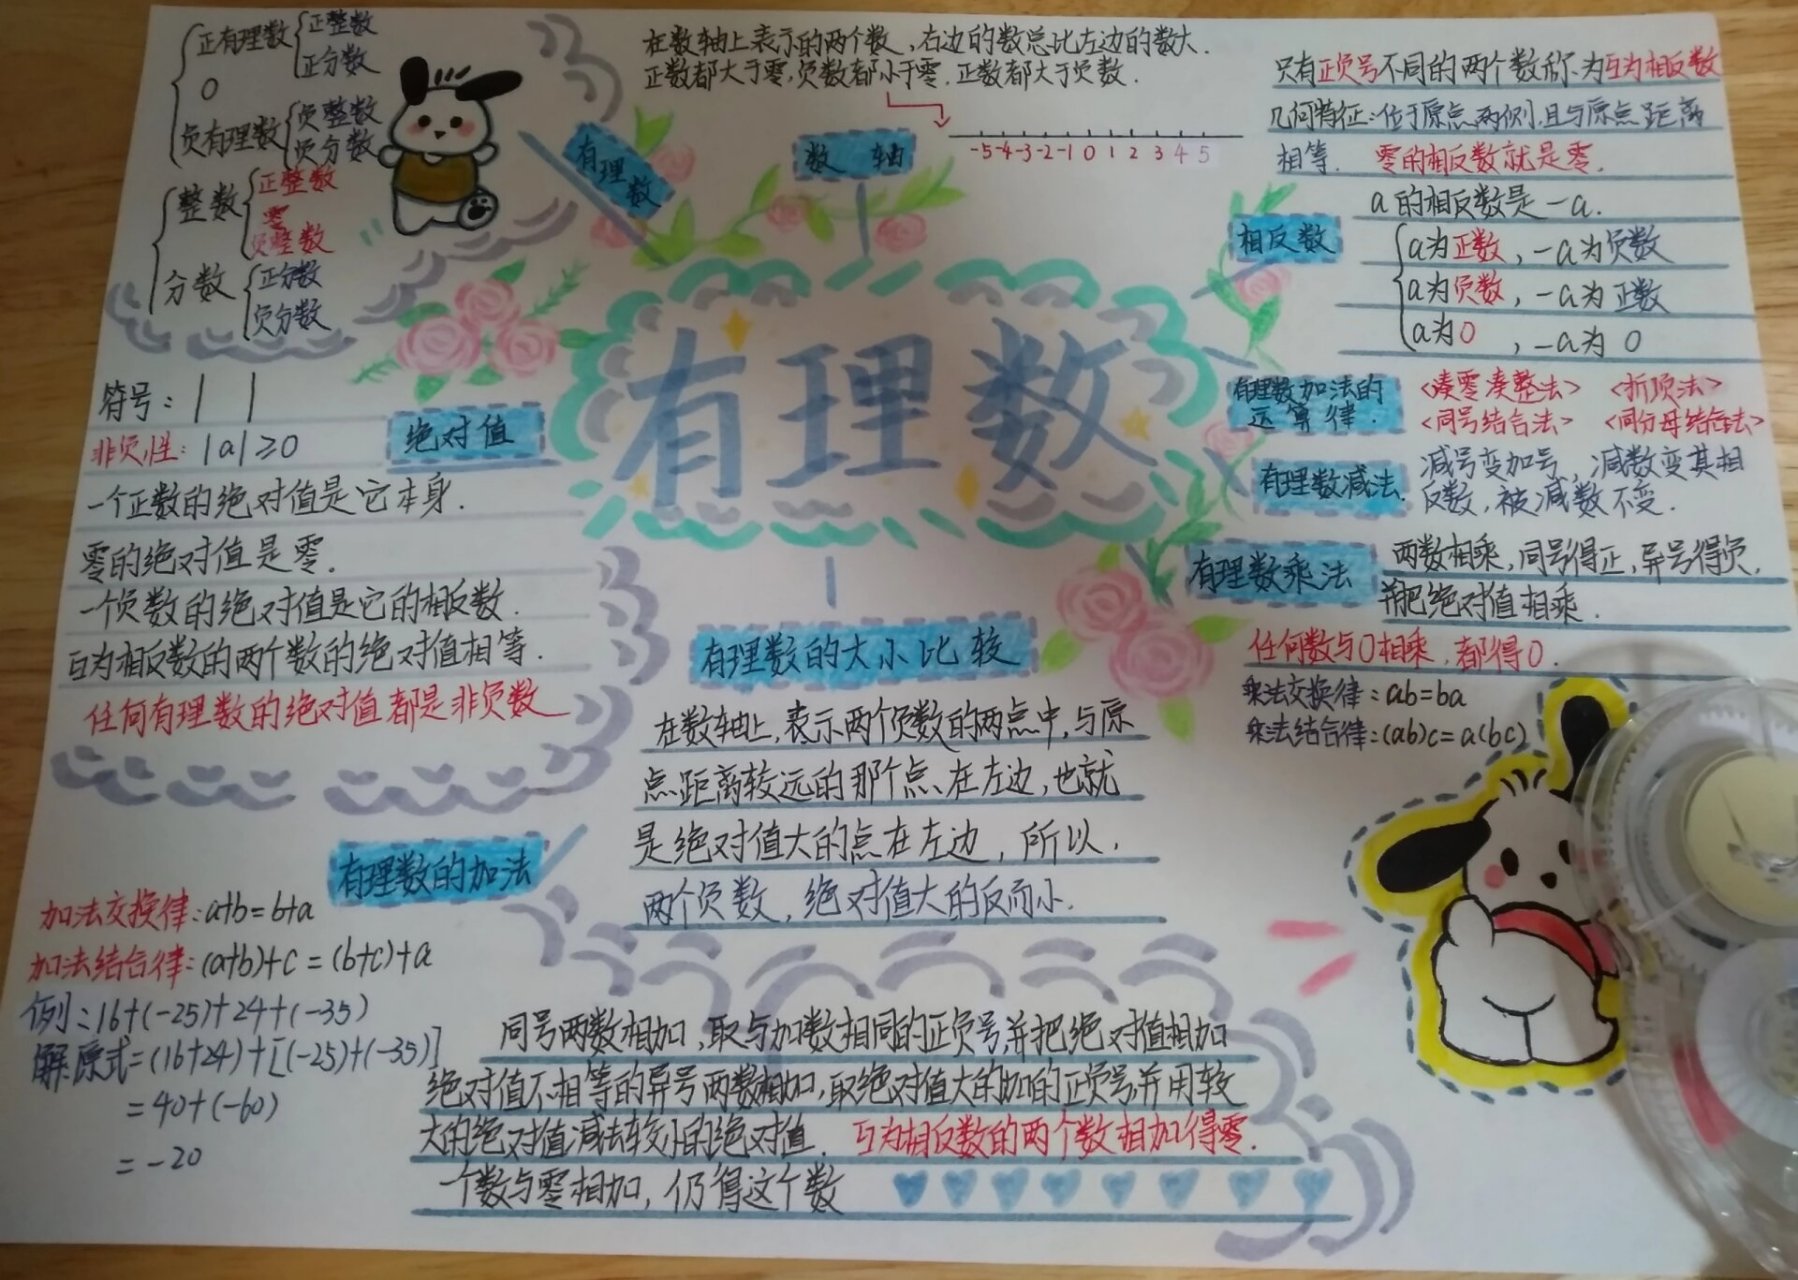 正有理数
正整数
正分数
0
负有理数
负整数
负分数
整数
正整数
零
负整数
分数
正分数
负分数
有理数
在数轴上表示的两个数,右边的数总比左边的数大.
正数都大于零,负数都小于零.正数都大于负数.
数轴
-5-4-3-2-1 0 1 2 3 4 5
只有正负号不同的两个数称为互为相反数
几何特征:位于原点两侧,且与原点距离
相等. 零的相反数就是零.
相反数
a的相反数是-a.
a为正数,-a为负数
a为负数,-a为正数
a为0,-a为0
有理数
符号:| |
绝对值
非负性:|a|≥0
一个正数的绝对值是它本身.
零的绝对值是零.
一个负数的绝对值是它的相反数.
互为相反数的两个数的绝对值相等.
任何有理数的绝对值都是非负数
有理数加法的
运算律.
<凑零凑整法> <折项法>
<同号结合法> <同分母结合法>
有理数减法.
减号变加号,减数变其相
反数,被减数不变.
有理数乘法
两数相乘,同号得正,异号得负,
并把绝对值相乘.
任何数与0相乘,都得0.
乘法交换律:ab=ba
乘法结合律:(ab)c=a(bc)
有理数的大小比较
在数轴上,表示两个负数的两点中,与原
点距离较远的那个点在左边,也就
是绝对值大的点在左边,所以,
两个负数,绝对值大的反而小.
有理数的加法
加法交换律:a+b=b+a
加法结合律:(a+b)+c=(b+c)+a
例:16+(-25)+24+(-35)
解:原式=(16+24)+[(-25)+(-35)]
=40+(-60)
=-20
同号两数相加,取与加数相同的正负号,并把绝对值相加
绝对值不相等的异号两数相加,取绝对值大的加的正负号并用较
大的绝对值减去较小的绝对值. 互为相反数的两个数相加得零.
一个数与零相加,仍得这个数